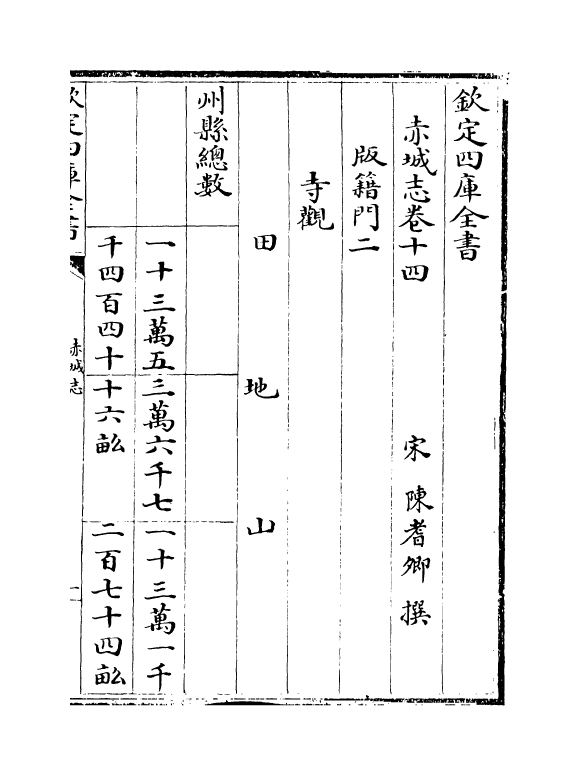 欽定四庫全書
赤城志卷十四 宋 陳耆卿 撰
版籍門二
寺觀
田 地 山
州縣總數
一十三萬五 三萬六千七 一十三萬一千
千四百四十 十六畝 二百七十四畝
欽定四庫全書 赤城志 一